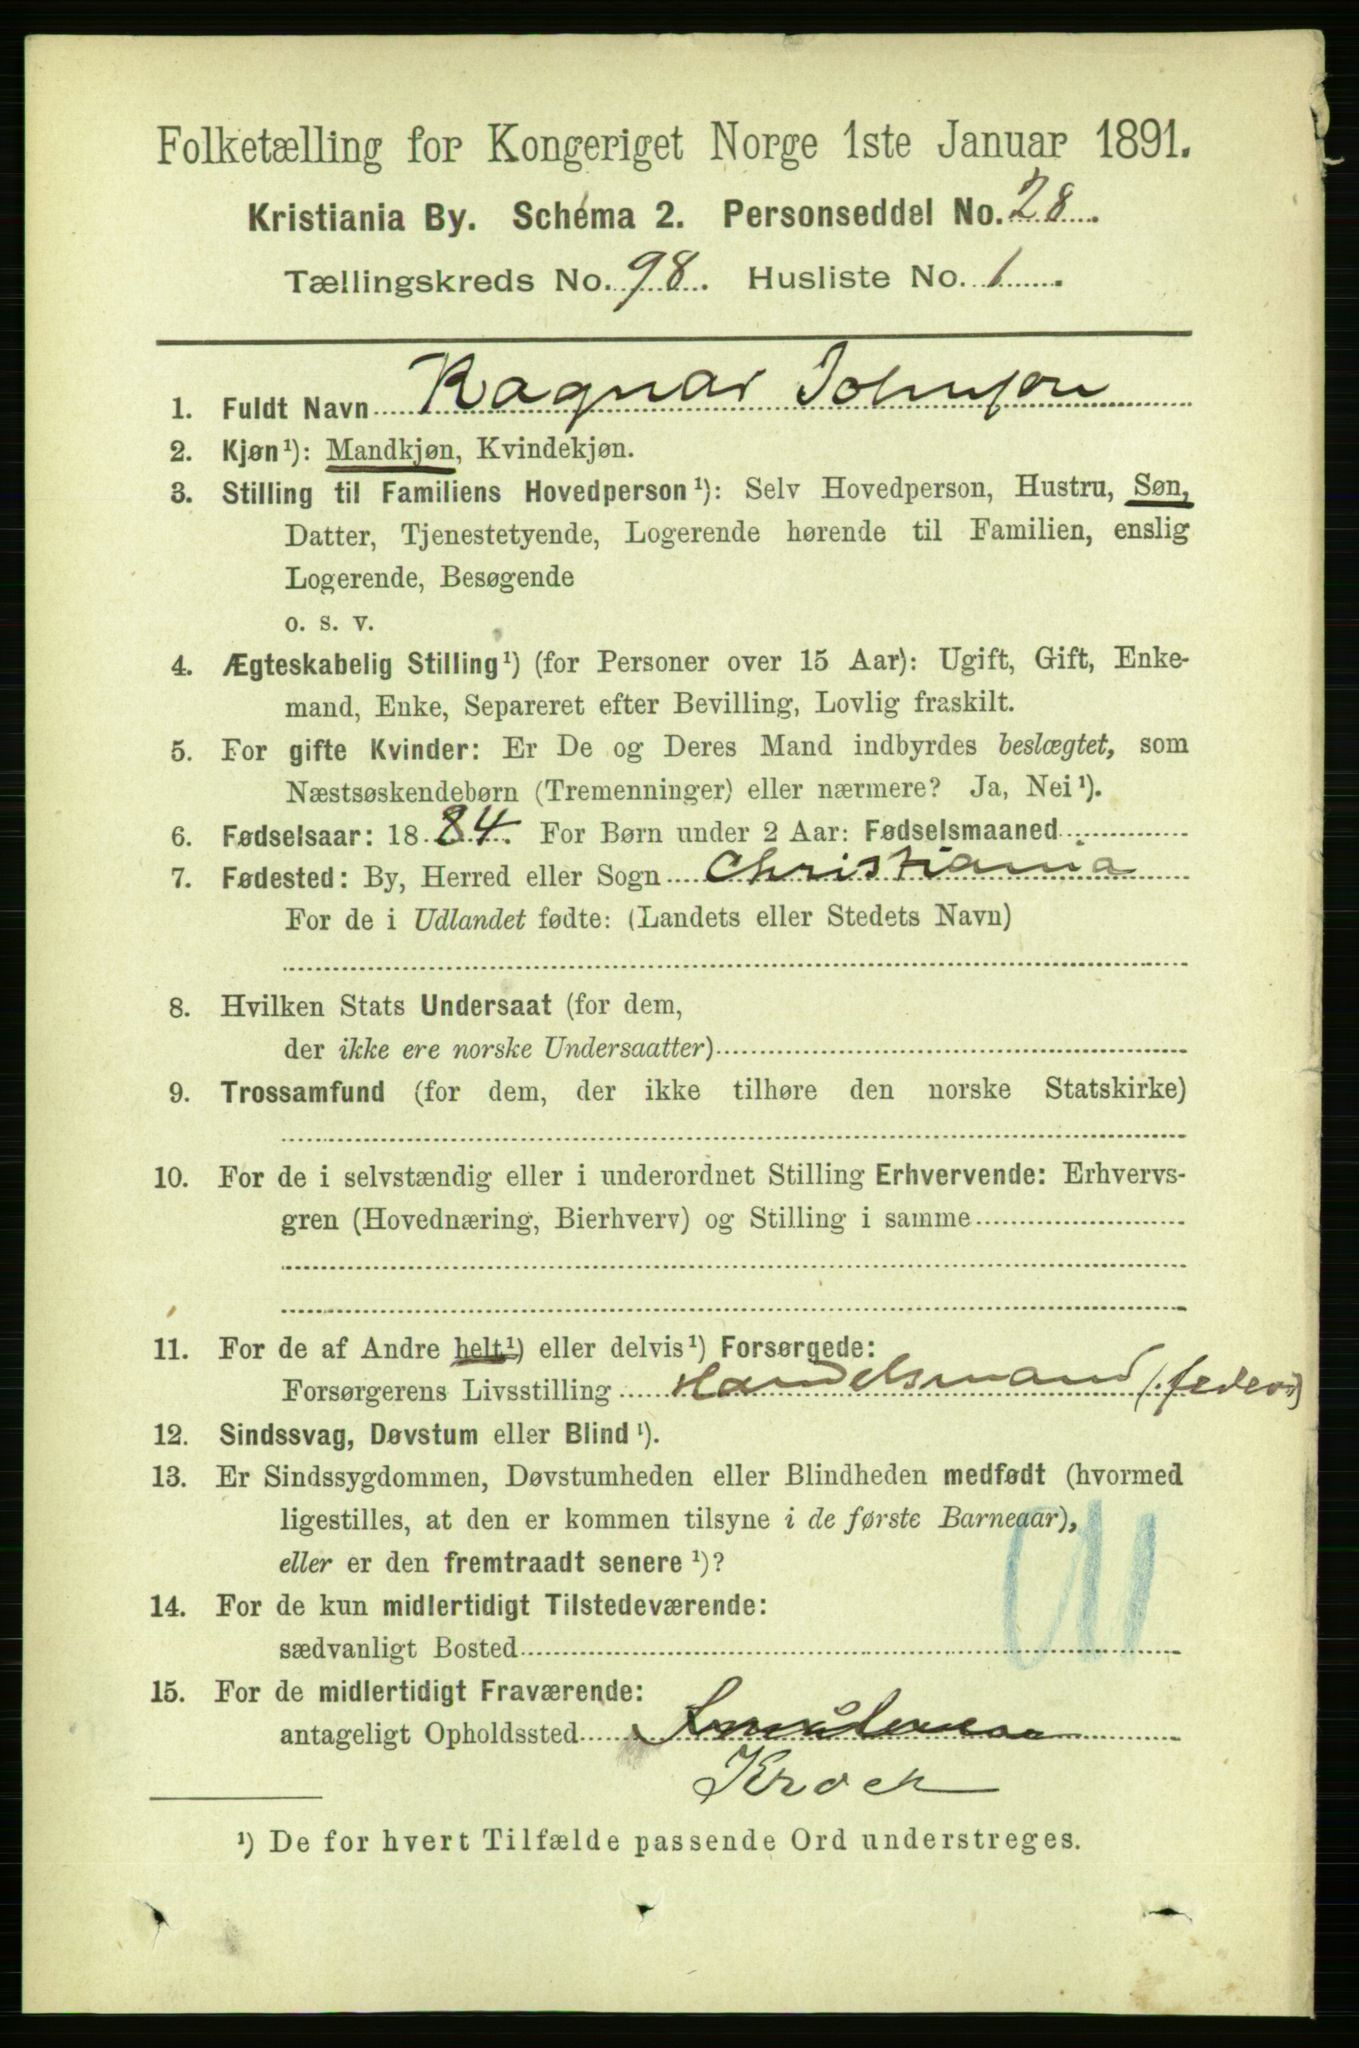 Folketælling for Kongeriget Norge 1ste Januar 1891.
Kristiania By. Schema 2. Personseddel No. 28.
Tællingskreds No. 98. Husliste No. 1
1. Fuldt Navn Ragnar Johnson
2. Kjøn¹): Mandkjøn, Kvindekjøn.
3. Stilling til Familiens Hovedperson¹): Selv Hovedperson, Hustru, Søn,
Datter, Tjenestetyende, Logerende hørende til Familien, enslig
Logerende, Besøgende
o. s. v.
4. Ægteskabelig Stilling¹) (for Personer over 15 Aar): Ugift, Gift, Enke-
mand, Enke, Separeret efter Bevilling, Lovlig fraskilt.
5. For gifte Kvinder: Er De og Deres Mand indbyrdes beslægtet, som
Næstsøskendebørn (Tremenninger) eller nærmere? Ja, Nei¹).
6. Fødselsaar: 1884. For Børn under 2 Aar: Fødselsmaaned
7. Fødested: By, Herred eller Sogn Christiania
For de i Udlandet fødte: (Landets eller Stedets Navn)
8. Hvilken Stats Undersaat (for dem,
der ikke ere norske Undersaatter)
9. Trossamfund (for dem, der ikke tilhøre den norske Statskirke)
10. For de i selvstændig eller i underordnet Stilling Erhvervende: Erhvervs-
gren (Hovednæring, Bierhverv) og Stilling i samme
11. For de af Andre helt¹) eller delvis¹) Forsørgede:
Forsørgerens Livsstilling Handelsmand
12. Sindssvag, Døvstum eller Blind¹).
13. Er Sindssygdommen, Døvstumheden eller Blindheden medfødt (hvormed
ligestilles, at den er kommen tilsyne i de første Barneaar),
eller er den fremtraadt senere¹)?
14. For de kun midlertidigt Tilstedeværende:
sædvanligt Bosted
15. For de midlertidigt Fraværende:
antageligt Opholdssted
¹) De for hvert Tilfælde passende Ord understreges.